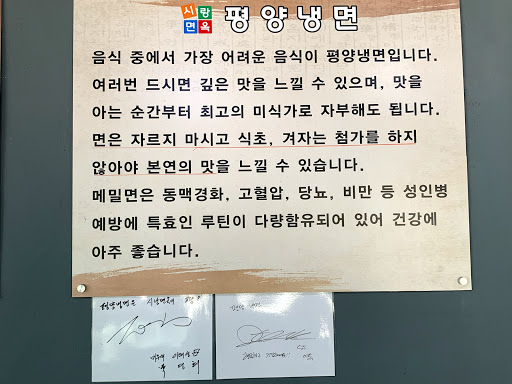 시랑면옥 평양냉면
음식 중에서 가장 어려운 음식이 평양냉면입니다.
여러번 드시면 깊은 맛을 느낄 수 있으며, 맛을
아는 순간부터 최고의 미식가로 자부해도 됩니다.
면은 자르지 마시고 식초, 겨자는 첨가를 하지
않아야 본연의 맛을 느낄 수 있습니다.
메밀면은 동맥경화, 고혈압, 당뇨, 비만 등 성인병
예방에 특효인 루틴이 다량함유되어 있어 건강에
아주 좋습니다.